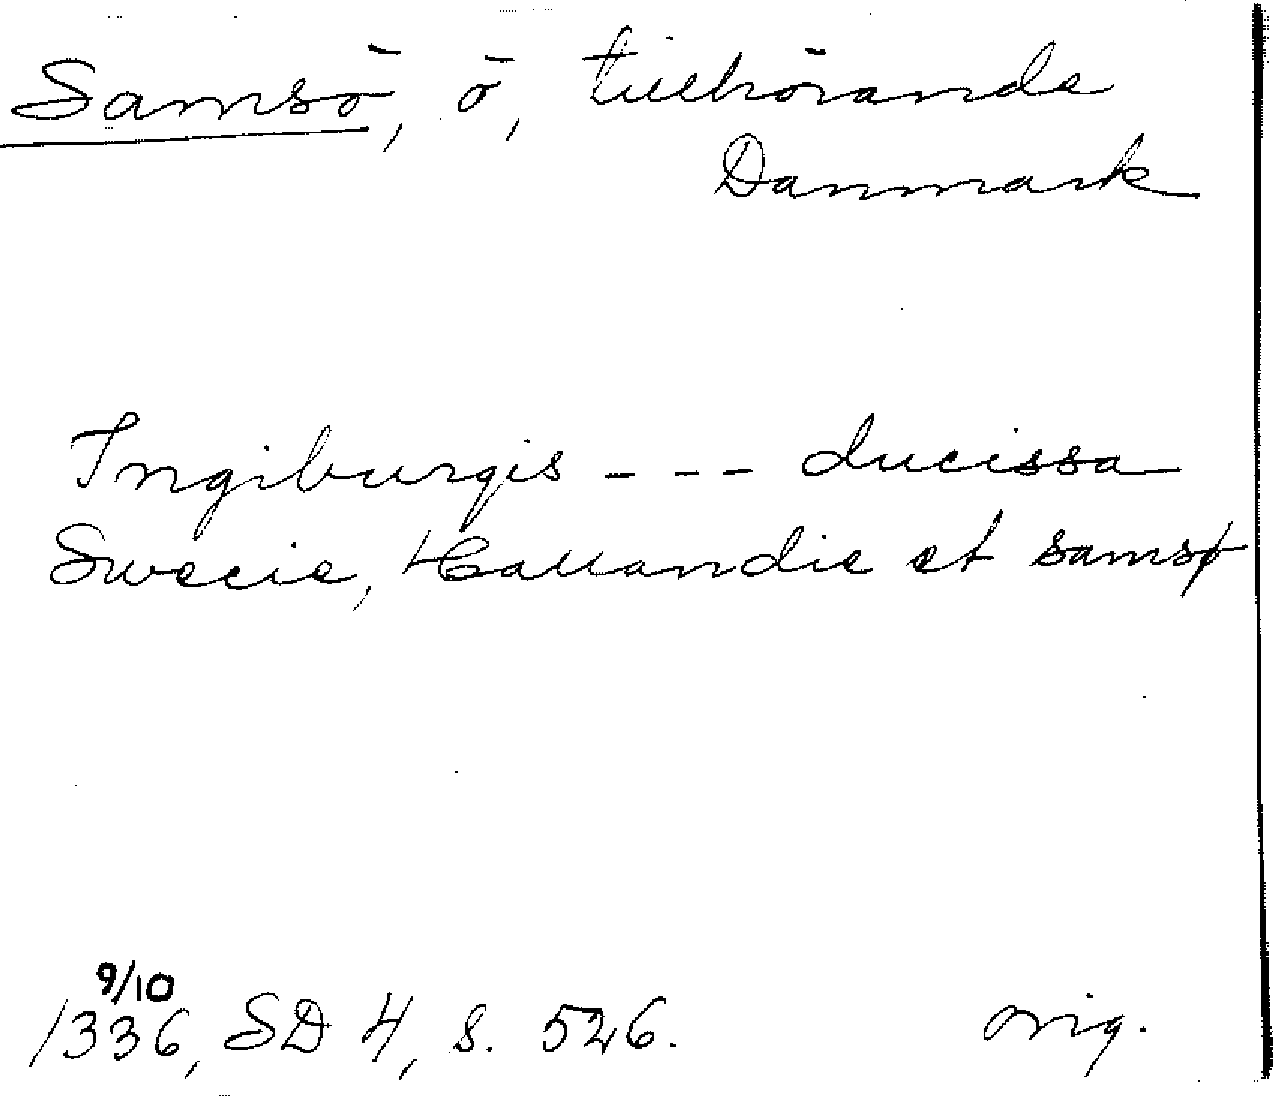 Samsö, ö, tillhörande
Danmark
Ingiburgis - - - ducissa
Swecie, Hallandie et samsø
9/10
1336, SD 4, s. 526.
orig.